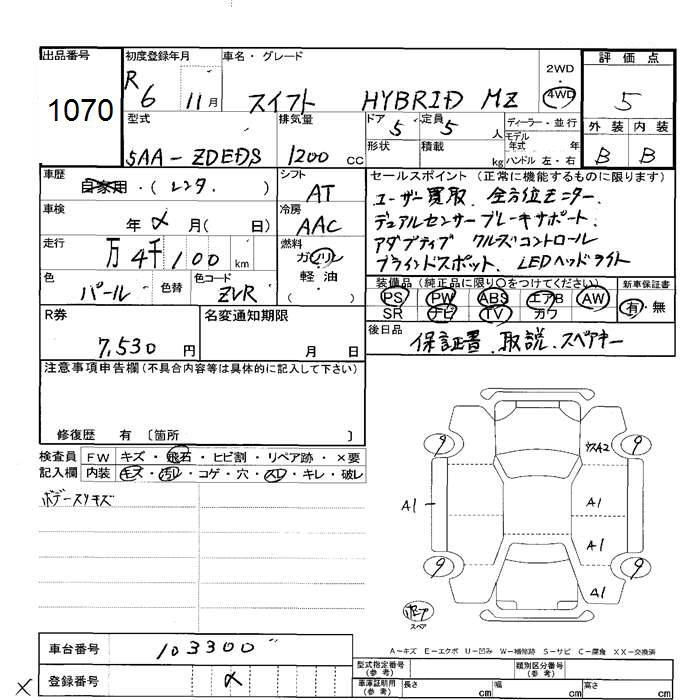 出品番号 初度登録年月 車名・グレード 2WD 評価点
1070 R6 11月 スイフト HYBRID MZ ・ 4WD 5
型式 排気量 ドア 5 定員 5人 ディーラー・並行 外装 内装
5AA-ZDEDS 1200 CC 形状 積載 kg モデル年式 年 ハンドル 左・右 B B
車歴 自家用・(レンタ.) シフト AT セールスポイント (正常に機能するものに限ります)
車検 年 月(日) 冷房 AAC ユーザー買取、全方位モニター、
デュアルセンサーブレーキサポート、
走行 万 4千100 km 燃料 ガソリン アダプティブ クルーズコントロール
軽油 ブラインドスポット、LEDヘッドライト
色 パール 色替 色コード ZVR ( ・ ) 装備品 (純正品に限り○をつけてください) 新車保証書
PS PW ABS エアB AW 有・無
SR ナビ TV カワ
R券 7,530円 名変通知期限 月 日 後日品 保証書、取説、スペアキー
注意事項申告欄(不具合内容等は具体的に記入して下さい)
修復歴 有 〔箇所 〕
検査員 FW キズ・飛石・ヒビ割・リペア跡・×要
記入欄 内装 キズ・汚レ・コゲ・穴・スレ・キレ・破レ
ボデースリキズ
9 9
A1 A1
A1
9 9
A1
スペア
A-キズ E-エクボ U-凹み W-補修跡 S-サビ C-腐食 XX-交換済
車台番号 103300
登録番号
型式指定番号(参考) 類別区分番号(参考)
車庫証明用(参考) 長さ cm 幅 cm 高さ cm